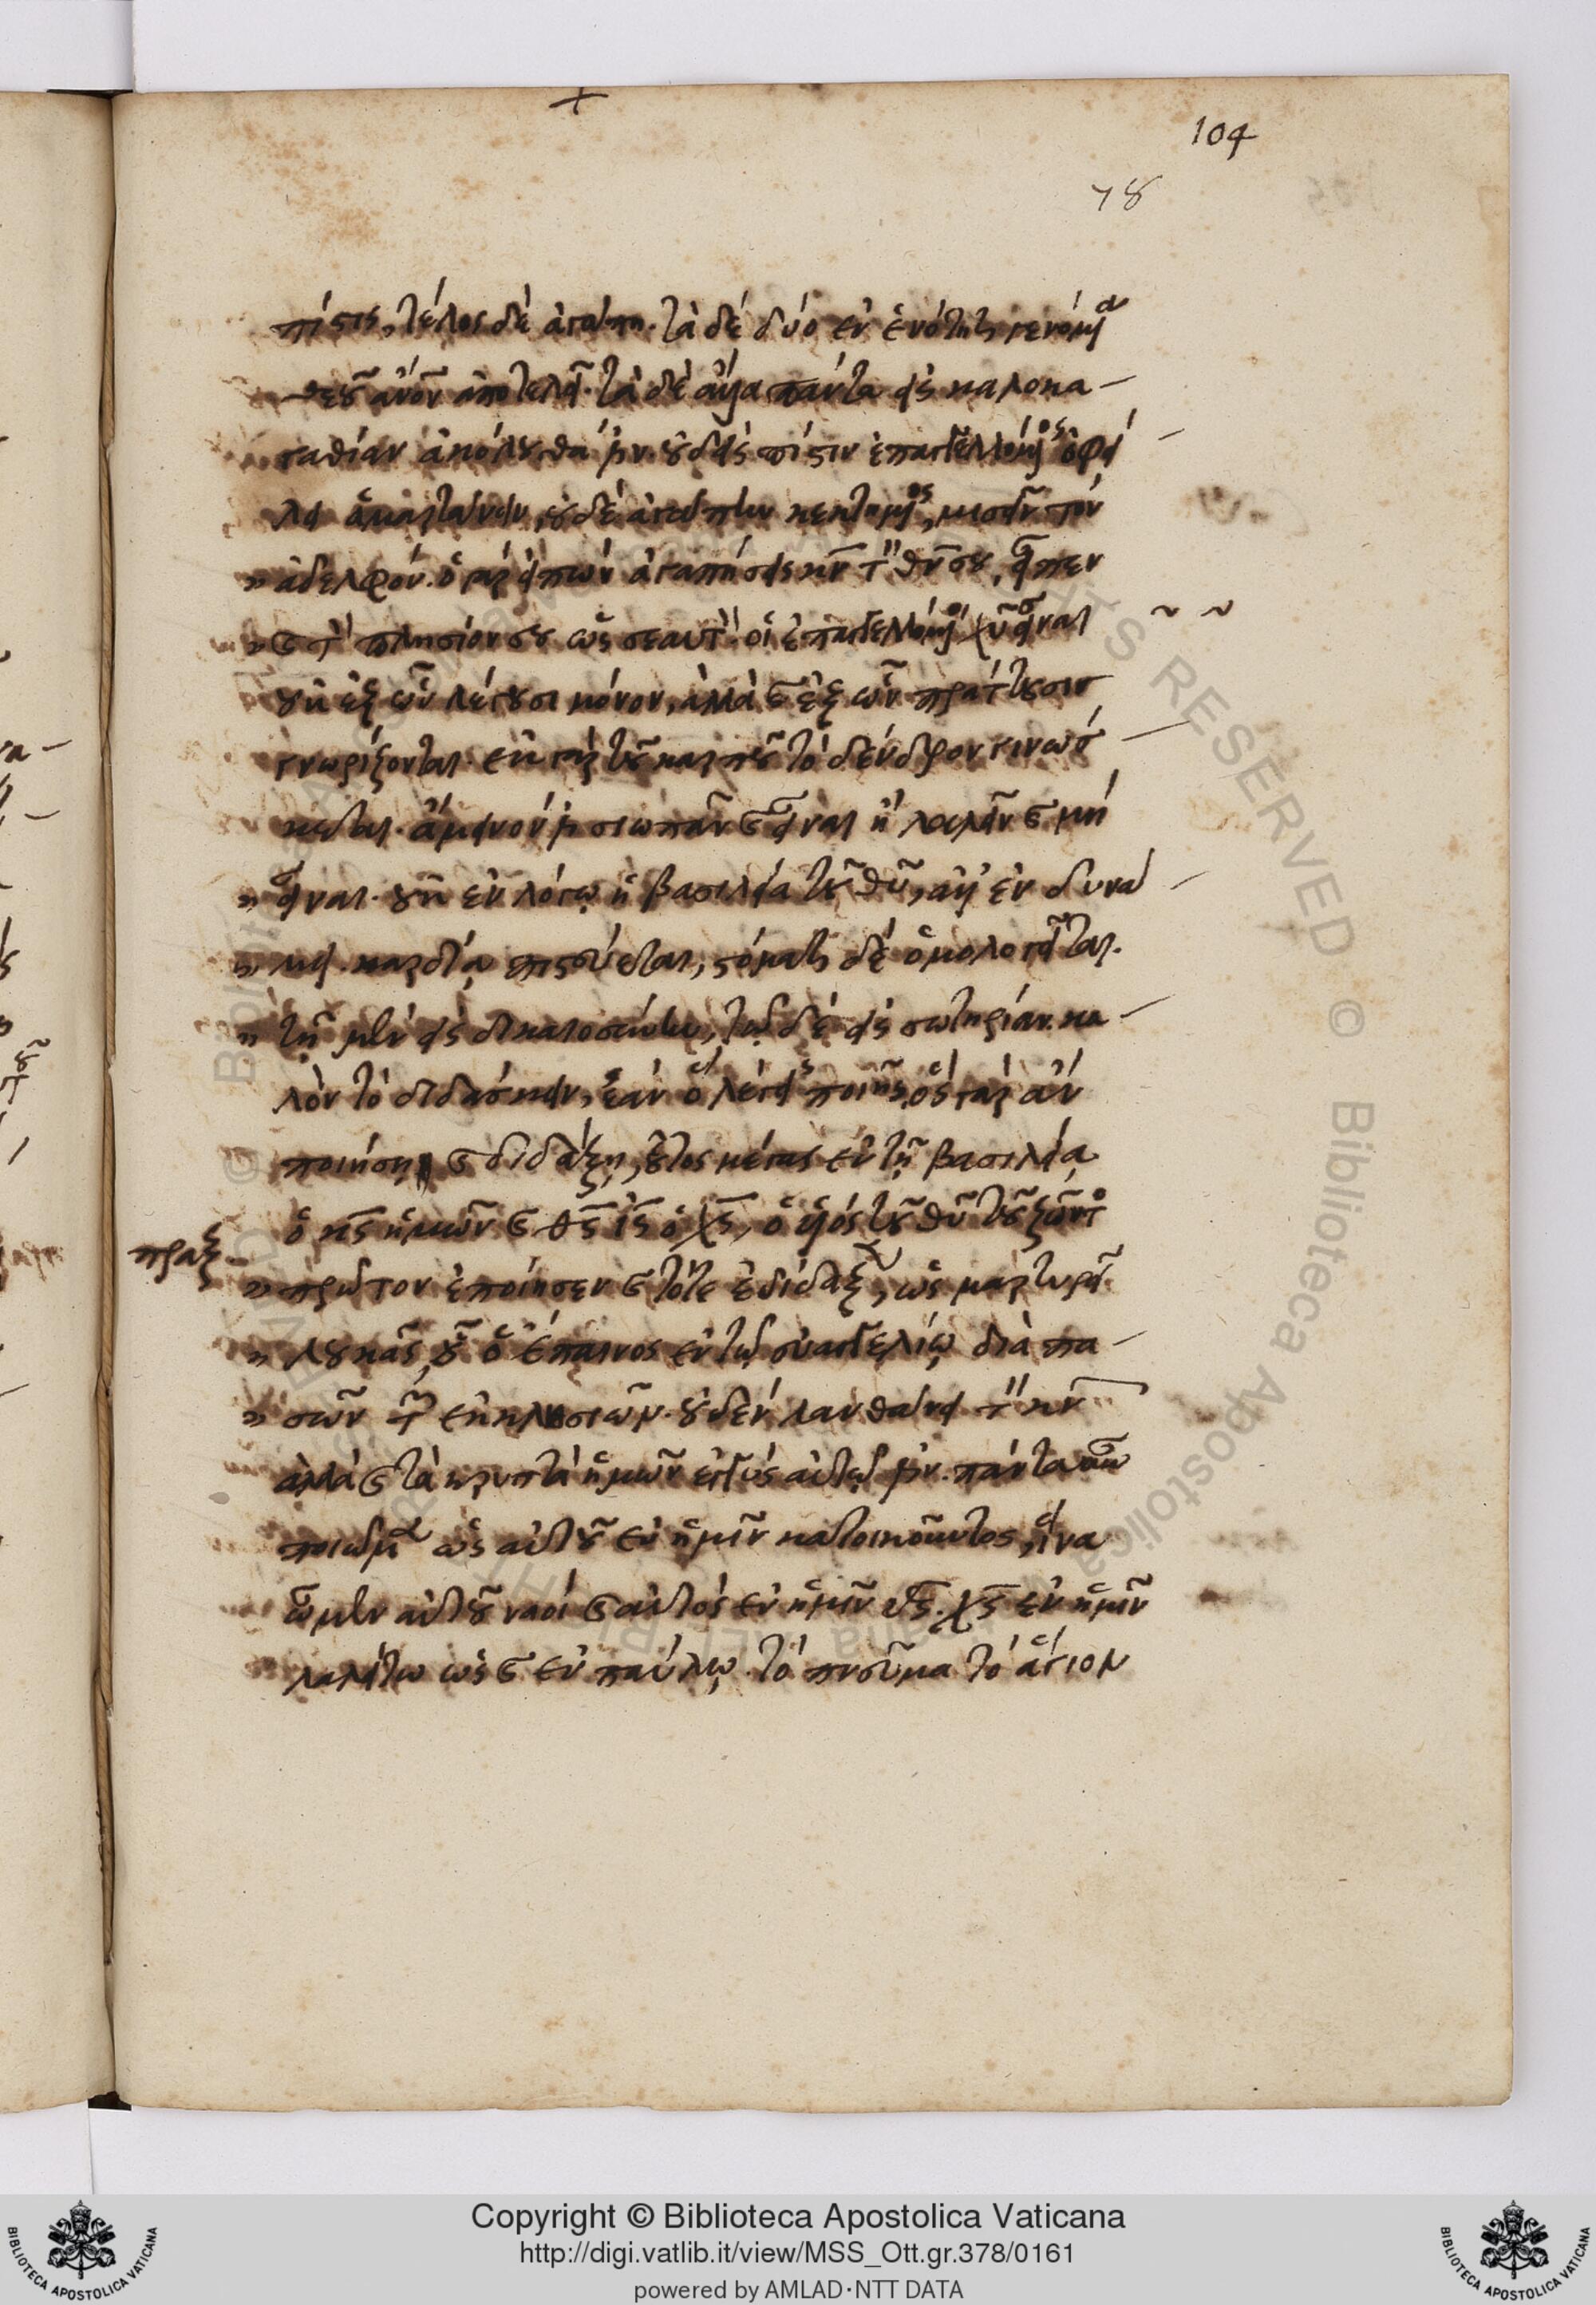 104
78
πίστις, τέλος δὲ ἀγάπη. τὰ δὲ δύο ἐν ἑνότητι γενόμενα
θεοῦ ἄνον ἀποτελεῖ. τὰ δὲ ἄλλα πάντα εἰς καλοκα-
γαθίαν ἀκόλουθά ἐστιν. οὐδεὶς πίστιν ἐπαγγελλόμενος ὀφεί-
λει ἁμαρτάνειν, οὐδὲ ἀγάπην κεκτημένος, μισεῖν τὸν
" ἀδελφόν. ὁ γὰρ εἰπὼν ἀγαπήσεις κν τὸν θν σου, εἶπεν
" καὶ τὸν πλησίον σου ὡς σεαυτόν. οἱ ἐπαγγελλόμενοι χυ εἶναι
οὐκ ἐξ ὧν λέγουσι μόνον, ἀλλὰ καὶ ἐξ ὧν πράττουσιν
γνωρίζονται. ἐκ γὰρ τοῦ καρποῦ τὸ δένδρον γινώσ-
κεται. ἄμεινόν ἐστι σιωπᾶν καὶ εἶναι ἢ λαλεῖν καὶ μὴ
" εἶναι. οὐκ ἐν λόγῳ ἡ βασιλεία τοῦ θυ, ἀλλ' ἐν δυνά-
" μει. καρδίᾳ πιστεύεται, στόματι δὲ ὁμολογεῖται.
" τῇ μὲν εἰς δικαιοσύνην, τῷ δὲ εἰς σωτηρίαν. κα-
λὸν τὸ διδάσκειν, ἐὰν ὁ λέγει ποιῇς, ὃς γὰρ ἂν
ποιήσῃ καὶ διδάξῃ, οὗτος μέγας ἐν τῇ βασιλείᾳ
ὁ κς ἡμῶν καὶ θς ις ὁ χς, ὁ υἱὸς τοῦ θυ τοῦ ζῶντος
πραξ
" πρῶτον ἐποίησεν καὶ τότε ἐδίδαξεν, ὡς μαρτυρεῖ
" λουκᾶς, οὗ ὁ ἔπαινος ἐν τῷ εὐαγγελίῳ διὰ πα-
" σῶν τῶν ἐκκλησιῶν. οὐδὲν λανθάνει τὸν κν
ἀλλὰ καὶ τὰ κρυπτὰ ἡμῶν ἐγγὺς αὐτῷ ἐστιν. πάντα οὖν
ποιῶμεν ὡς αὐτοῦ ἐν ἡμῖν κατοικοῦντος, ἵνα
ὦμεν αὐτοῦ ναοὶ καὶ αὐτὸς ἐν ἡμῖν θς. χς ἐν ἡμῖν
λαλείτω ὡς καὶ ἐν παύλῳ. τὸ πνεῦμα τὸ ἅγιον
Copyright © Biblioteca Apostolica Vaticana
http://digi.vatlib.it/view/MSS_Ott.gr.378/0161
powered by AMLAD·NTT DATA
BIBLIOTECA APOSTOLICA VATICANA
BIBLIOTECA APOSTOLICA VATICANA